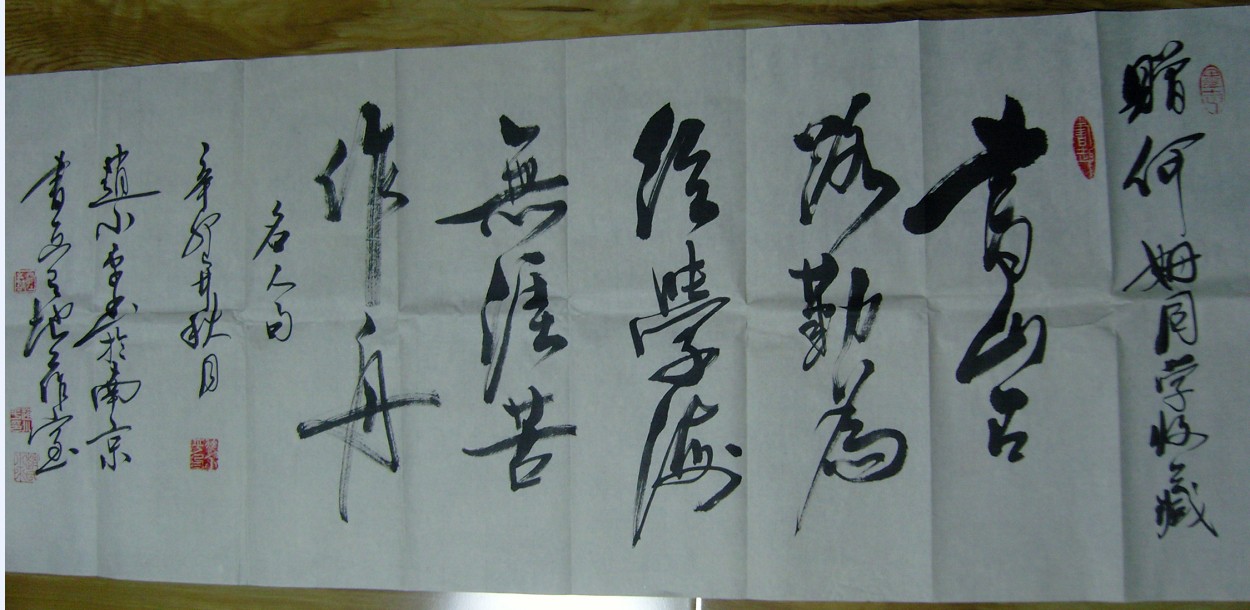 贈何姍同学收藏
書山有
路勤為
徑學海
無涯苦
作舟
名人句
辛卯年秋月
趙小書於南京
書天地工作室